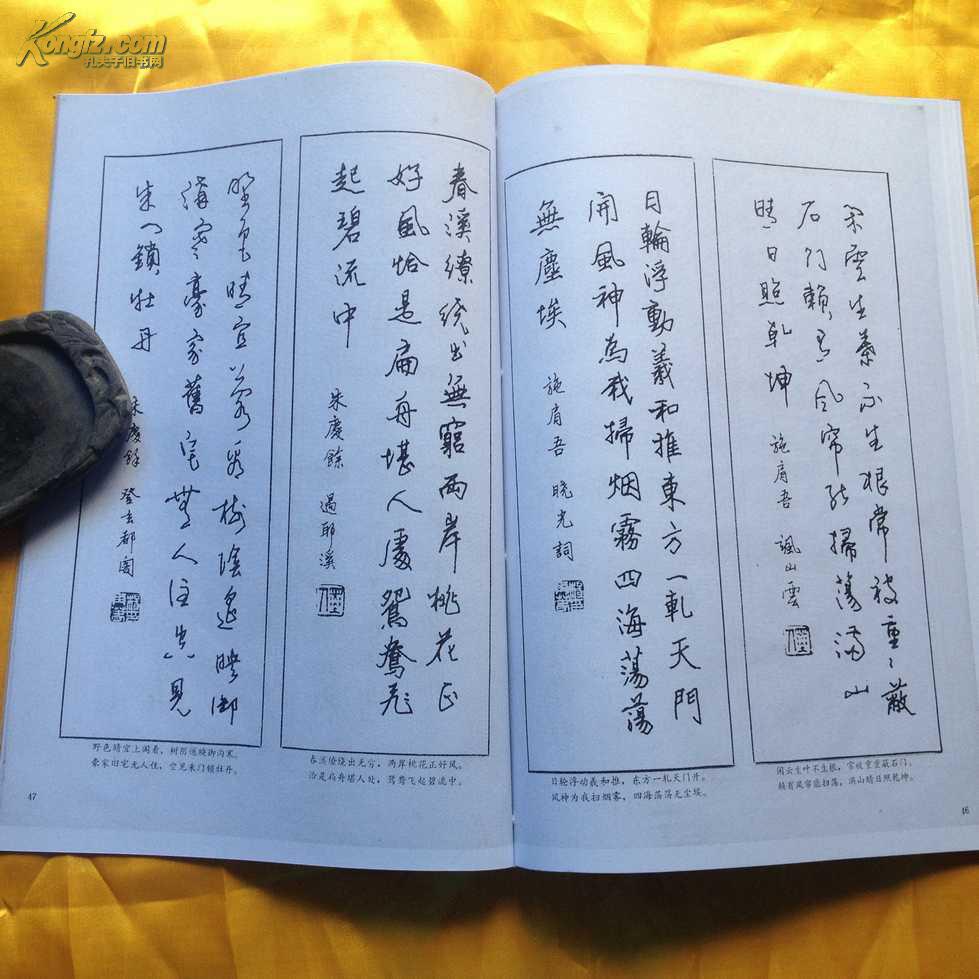 闲雲生葉不生根常被重々蔽
石门賴有风帘能掃蕩满山
晴日照乾坤 施肩吾 諷山雲
闲云生叶不生根，常被重重蔽石门。
赖有风帘能扫荡，满山晴日照乾坤。
46
日輪浮動羲和推東方一軋天門
開風神為我掃烟霧四海蕩蕩
無塵埃 施肩吾 晓光詞
日轮浮动羲和推，东方一轧天门开。
风神为我扫烟雾，四海荡荡无尘埃。
春溪繚绕出無窮兩岸桃花正
好風恰是扁舟堪入處鴛鴦飛
起碧流中 朱慶餘 過耶溪
春溪缭绕出无穷，两岸桃花正好风。
恰是扁舟堪入处，鸳鸯飞起碧流中。
野色晴宜上阁看樹陰遥映御
溝寒豪家舊宅無人住空見
朱门鎖牡丹 朱慶餘 登玄都閣
野色晴宜上阁看，树阴遥映御沟寒。
豪家旧宅无人住，空见朱门锁牡丹。
47
Kongfz.com
孔夫子旧书网